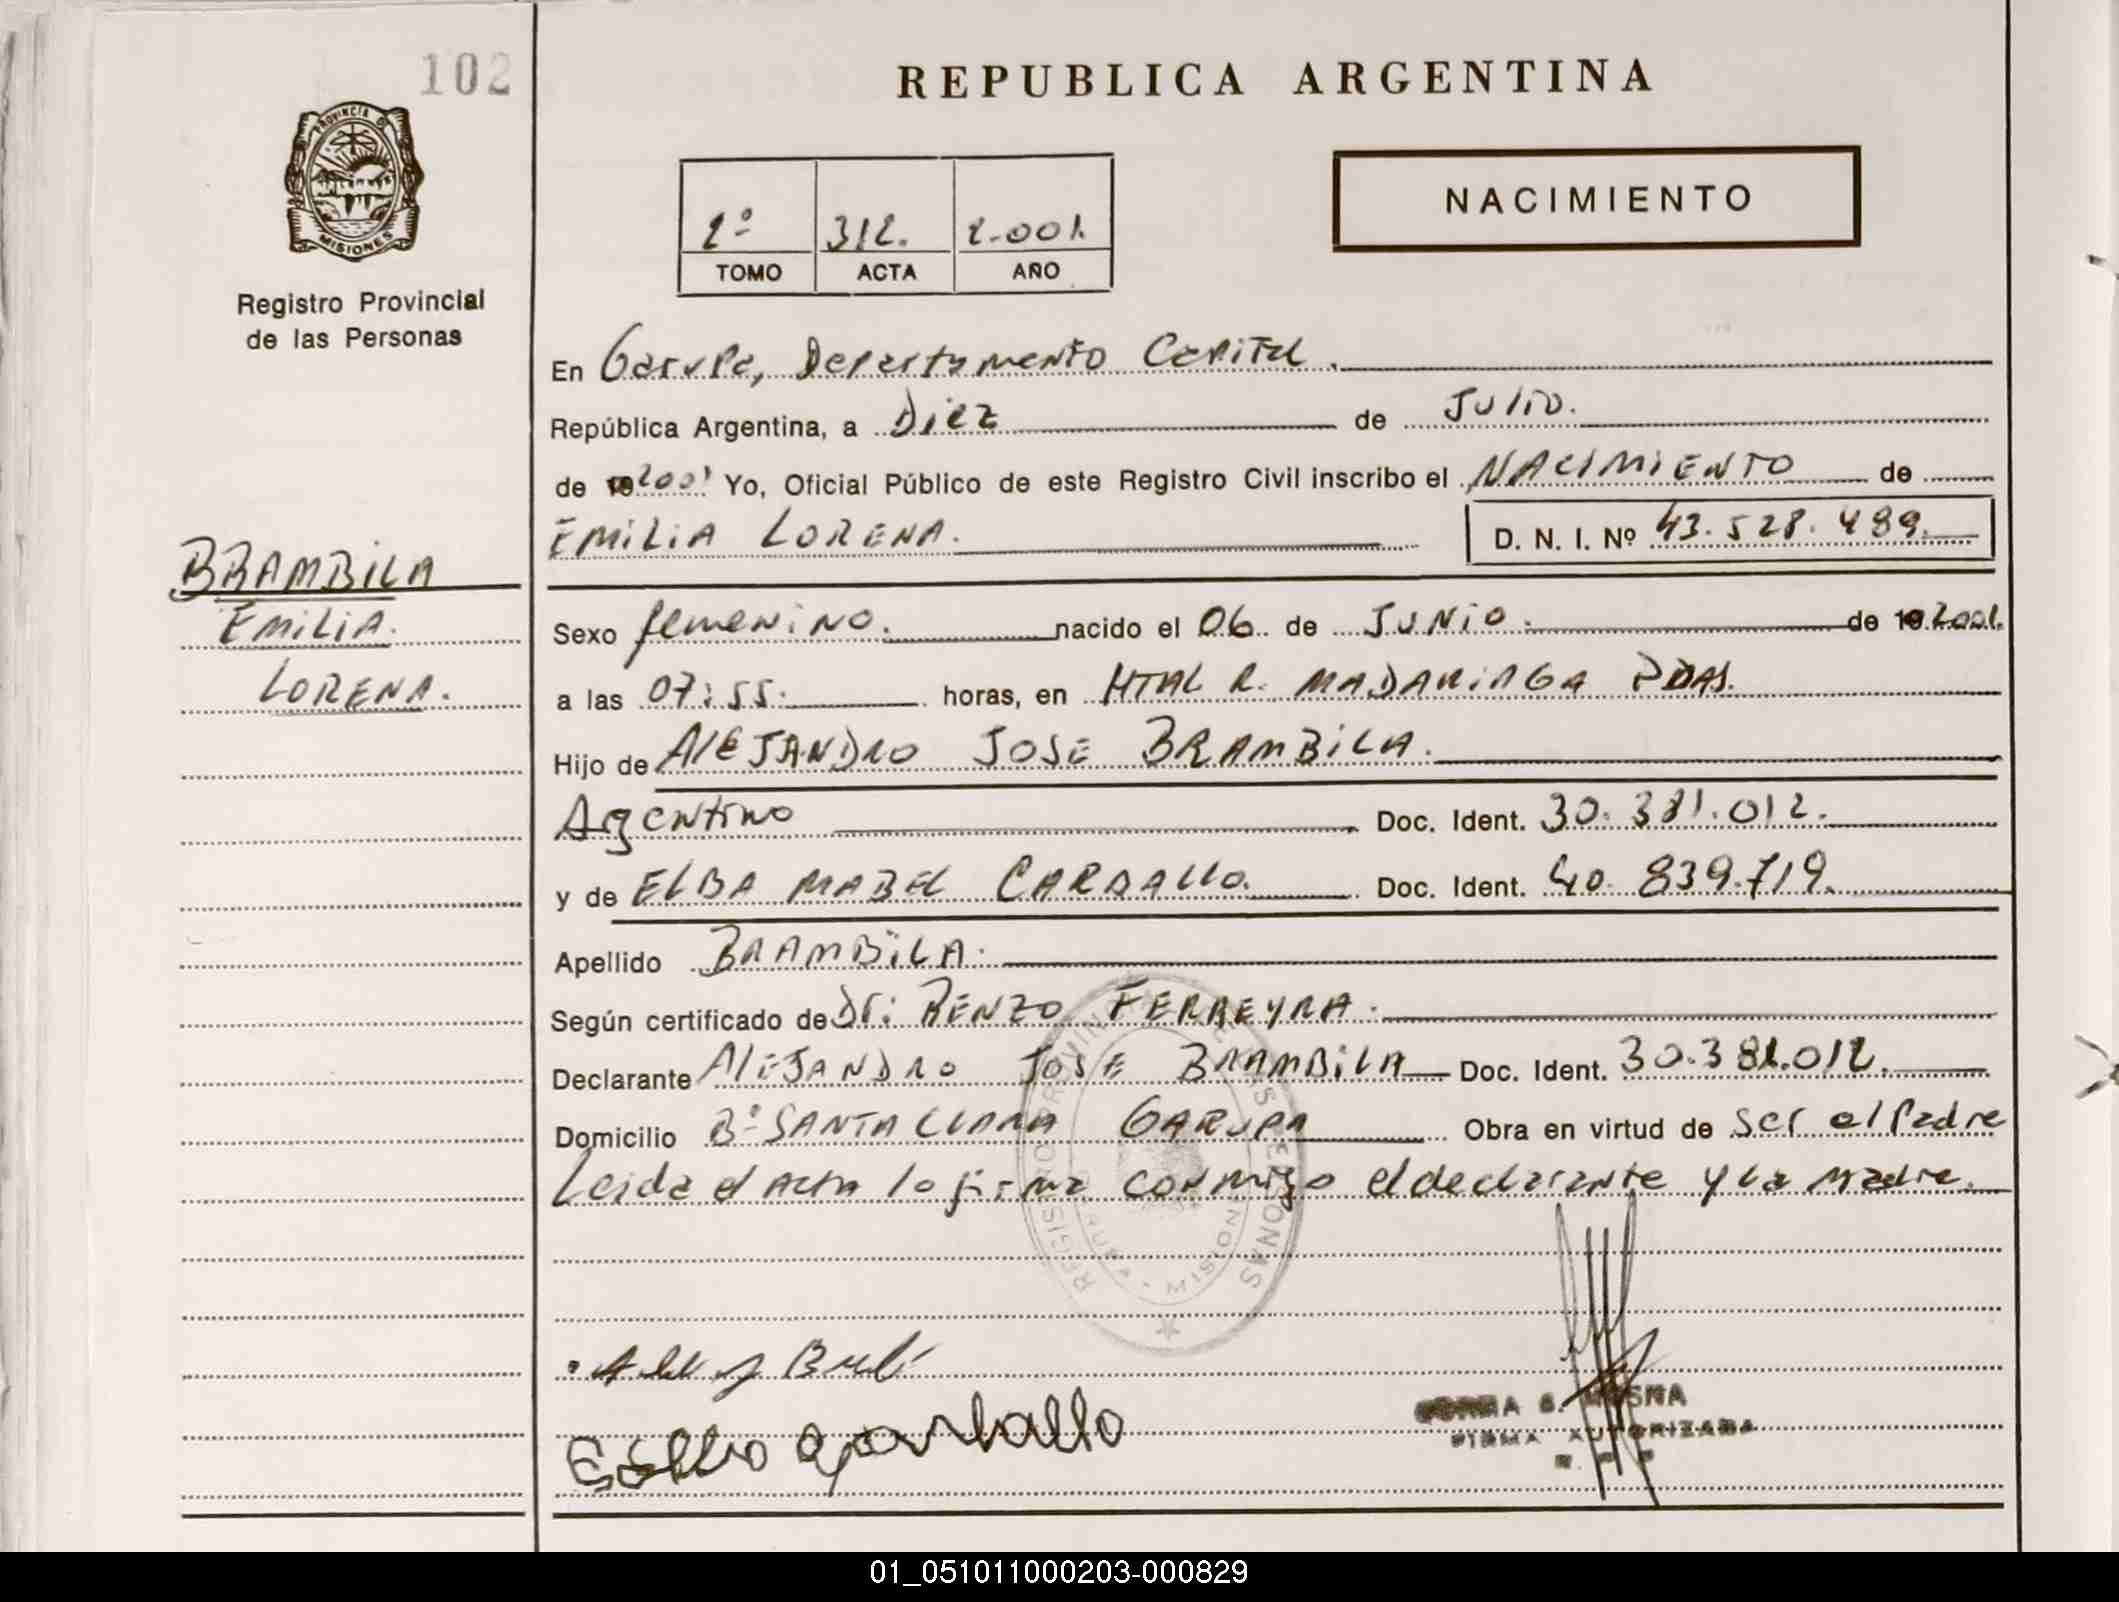 102
PROVINCIA DE
MISIONES
Registro Provincial
de las Personas
BRAMBILA
EMILIA.
LORENA.
REPUBLICA ARGENTINA
NACIMIENTO
2º 312. 2.001.
TOMO ACTA AÑO
En Garupa, Departamento Capital.
República Argentina, a Diez de Julio.
de 19 2001 Yo, Oficial Público de este Registro Civil inscribo el NACIMIENTO de
EMILIA LORENA. D. N. I. Nº 43.528.489.
Sexo femenino. nacido el 06 de JUNIO. de 19 2001.
a las 07:55. horas, en HTAL R. MADARIAGA PDAS.
Hijo de ALEJANDRO JOSE BRAMBILA.
Argentino Doc. Ident. 30.381.012.
y de ELBA MABEL CARBALLO. Doc. Ident. 40.839.719.
Apellido BRAMBILA.
Según certificado de Dr: RENZO FERREYRA.
Declarante ALEJANDRO JOSE BRAMBILA Doc. Ident. 30.381.012.
Domicilio Bº SANTA CLARA GARUPA Obra en virtud de ser el Padre
Leida el acta la firma conmigo el declarante y la madre.
REGISTRO PROVINCIAL DE LAS PERSONAS
MISIONES
Carballo
FIRMA AUTORIZADA
01_051011000203-000829